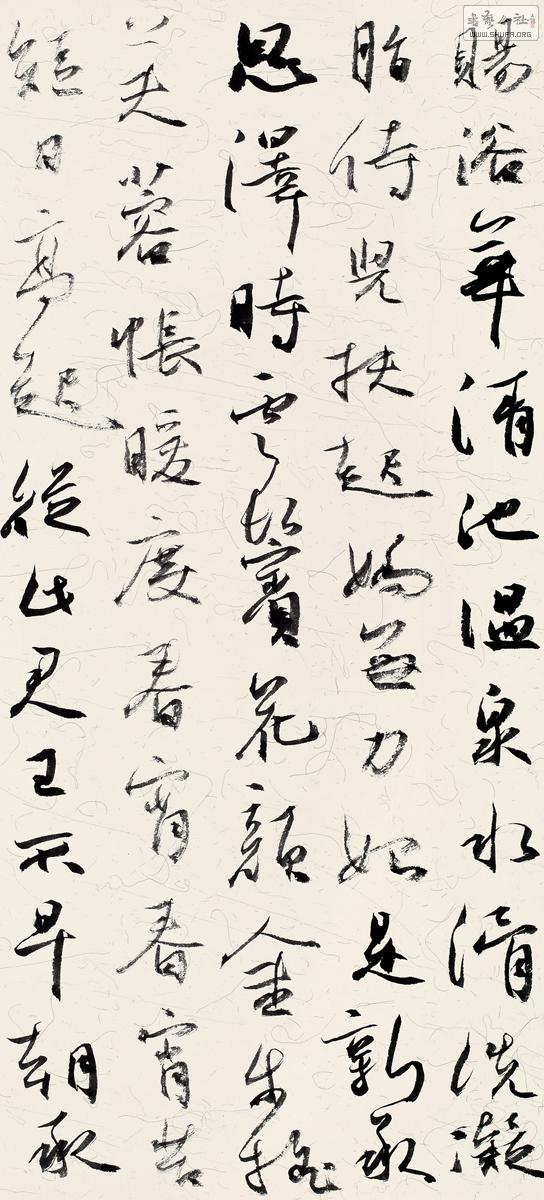 賜浴華清池温泉水滑洗凝
脂侍兒扶起嬌無力始是新承
恩澤時雲鬢花顏金步摇
芙蓉帳暖度春宵春宵苦
短日高起從此君王不早朝承
书艺公社
WWW.SHUFA.ORG